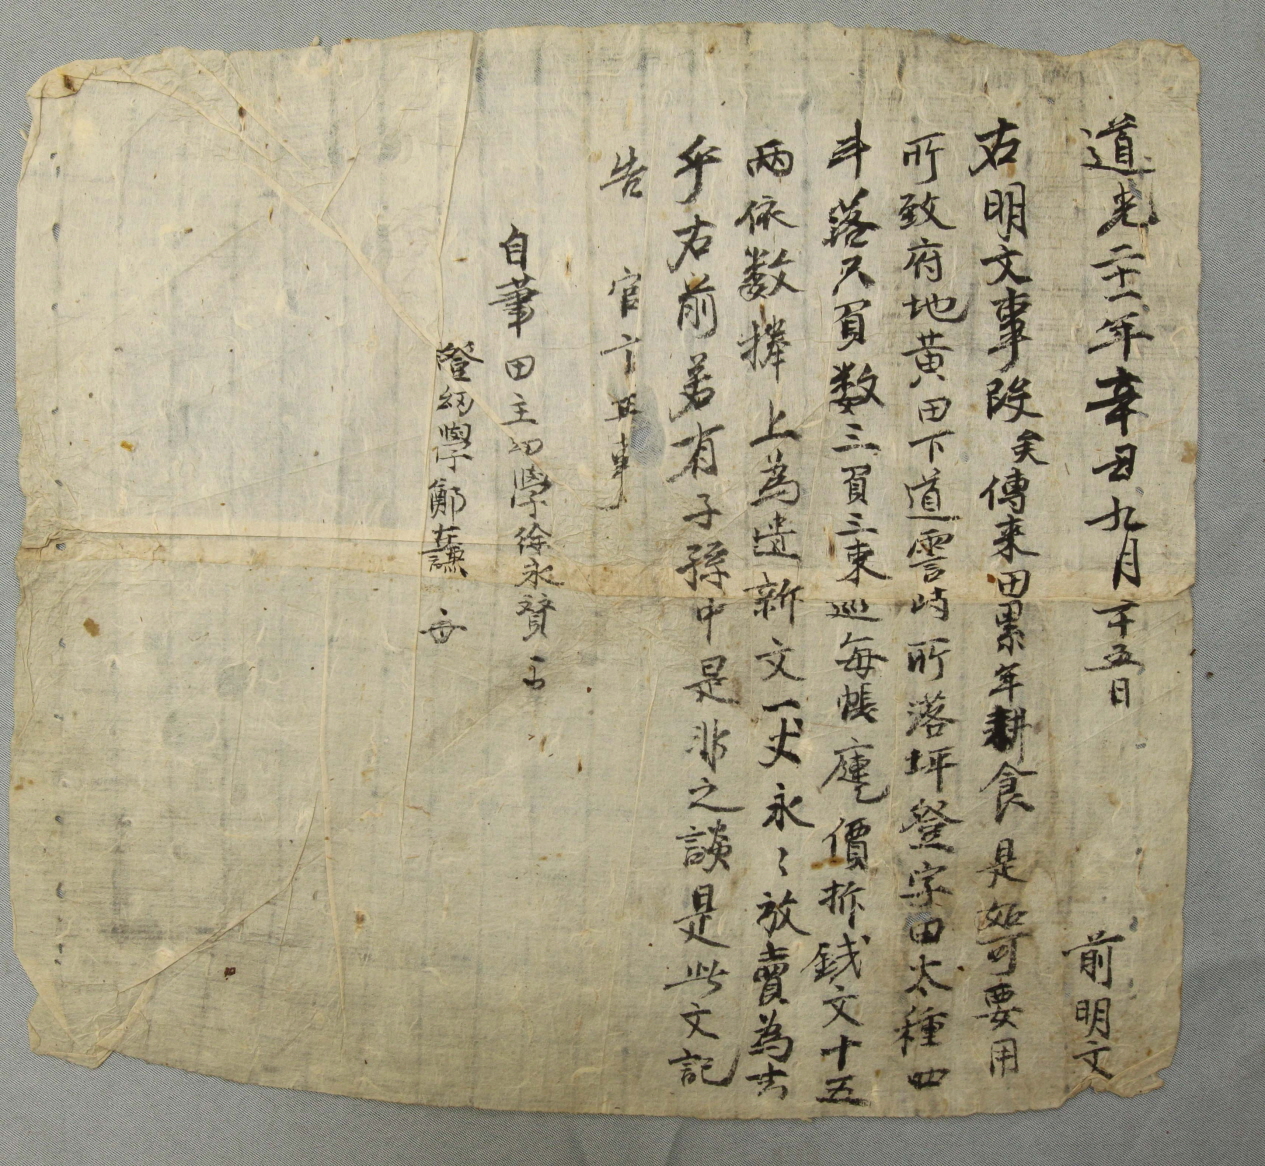 道光二十一年辛丑九月二十五日 前明文
右明文事段矣傳来田累年耕食是如可要用
所致府地黄田下道雲峙所落坪登字田太種四
斗落只負数三負三束㐣每帳廤價折錢文十五
両依数捧上為遣新文一丈永〻放賣為去
乎右前若有子孫中是非之談是此文記
告官卞正事
自筆田主幼學徐永賛
證幼學鄭